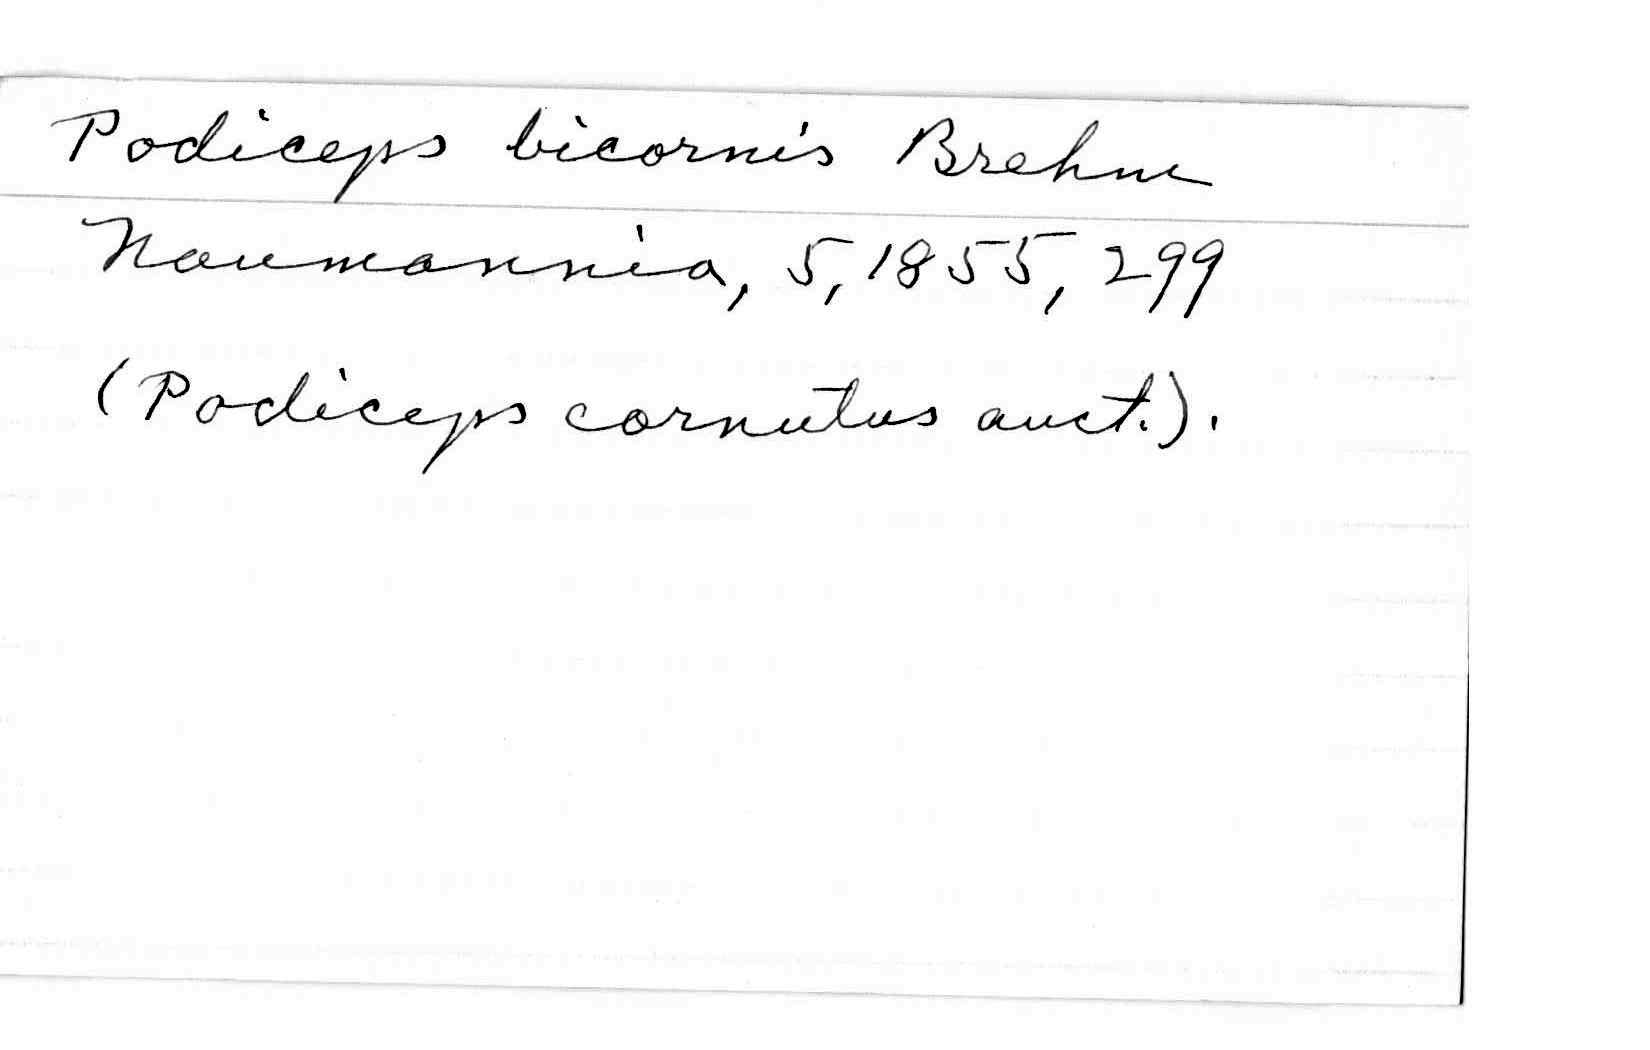 Podiceps bicornis Brehm
Naumannia, 5, 1855, 299
(Podiceps cornutus auct.).